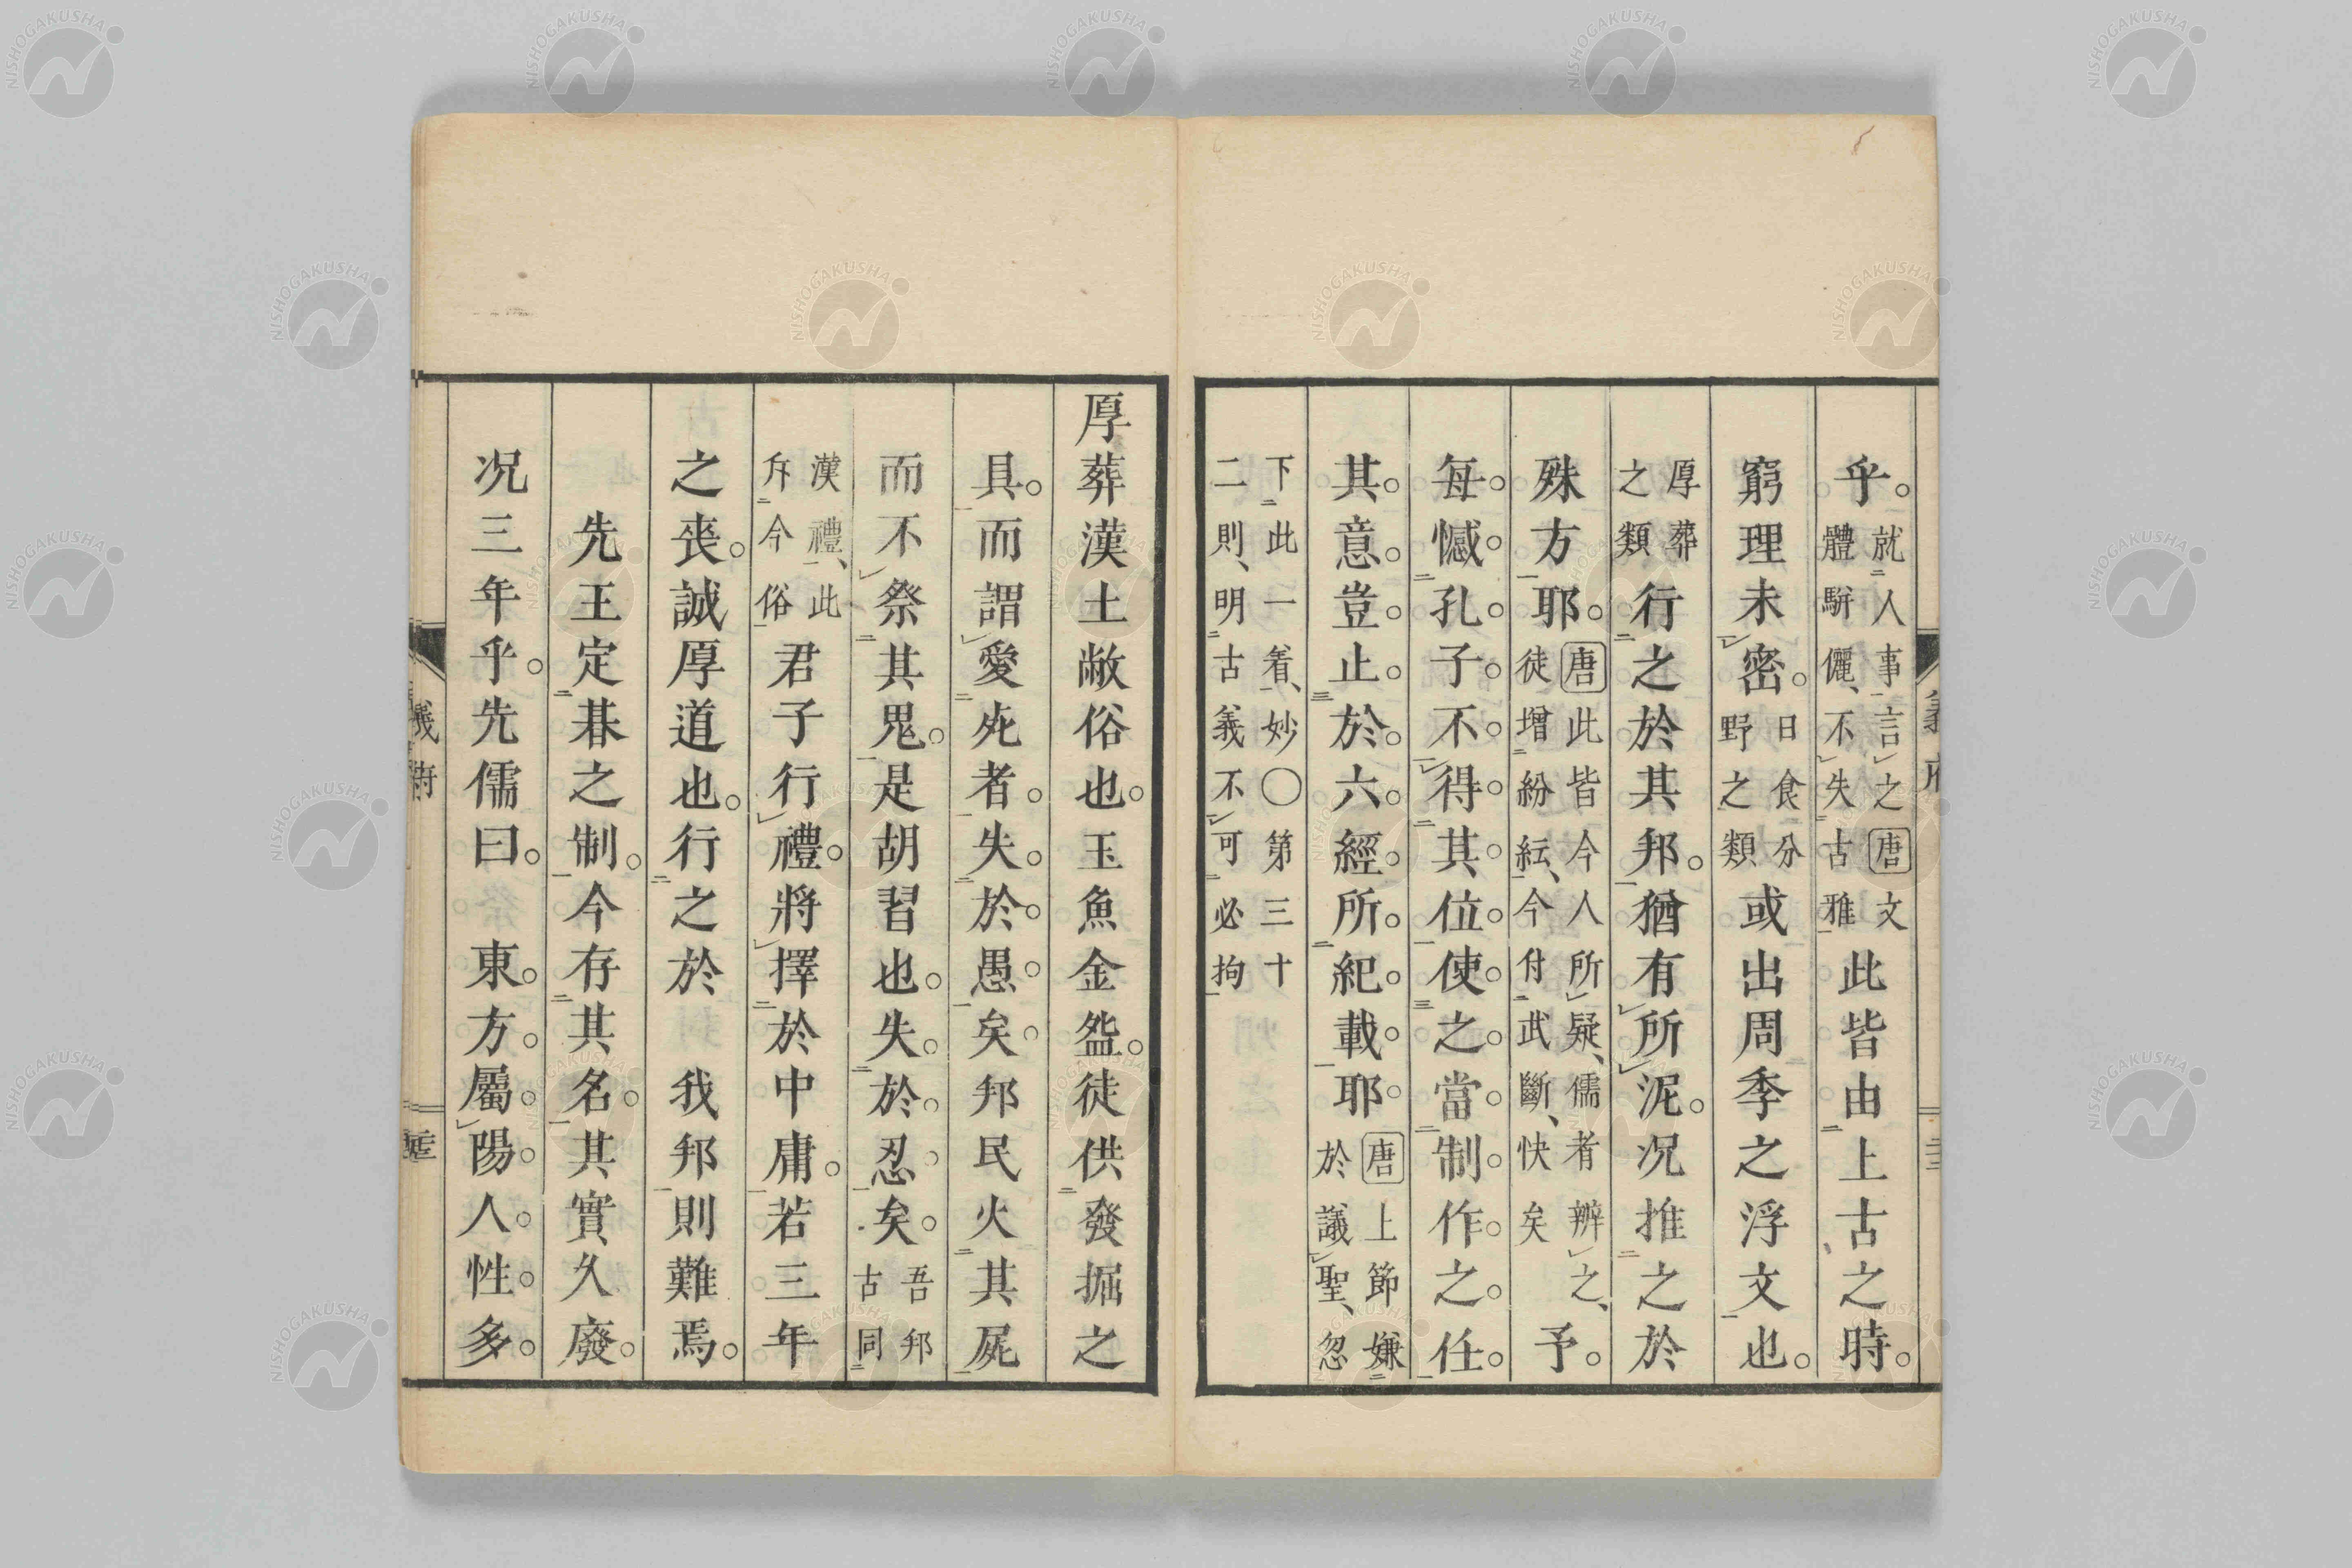 乎。就人事言之唐文體駢儷、不失古雅此皆由上古之時。
窮理未密。日食分野之類或出周季之浮文也。
厚葬之類行之於其邦。猶有所泥。況推之於
殊方耶。唐此皆今人所疑、儒者辨之、徒增紛紜、今付武斷、快矣予。
每憾孔子不得其位使之當制作之任
其意豈止於六經所紀載耶唐上節嫌於議聖、忽
下此一着、妙〇第三十二則、明古義不可必拘
厚葬漢土敝俗也。玉魚金盌。徒供發掘之
具。而謂愛死者。失於愚矣邦民火其屍
而不祭其鬼。是胡習也。失於忍矣。吾邦古同
漢禮、此斥今俗君子行禮。將擇於中庸。若三年
之喪。誠厚道也。行之於 我邦則難焉。
先王定朞之制。今存其名。其實久廢。
况三年乎。先儒曰。東方屬陽人性多
義府